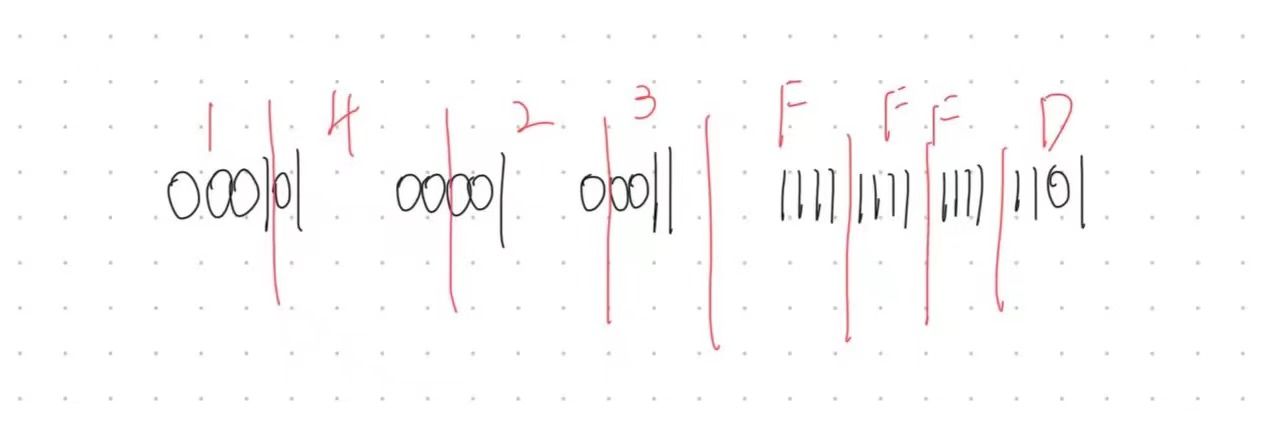 1 4 2 3 F F F D
000101 00001 00011 1111 1111 1111 1101